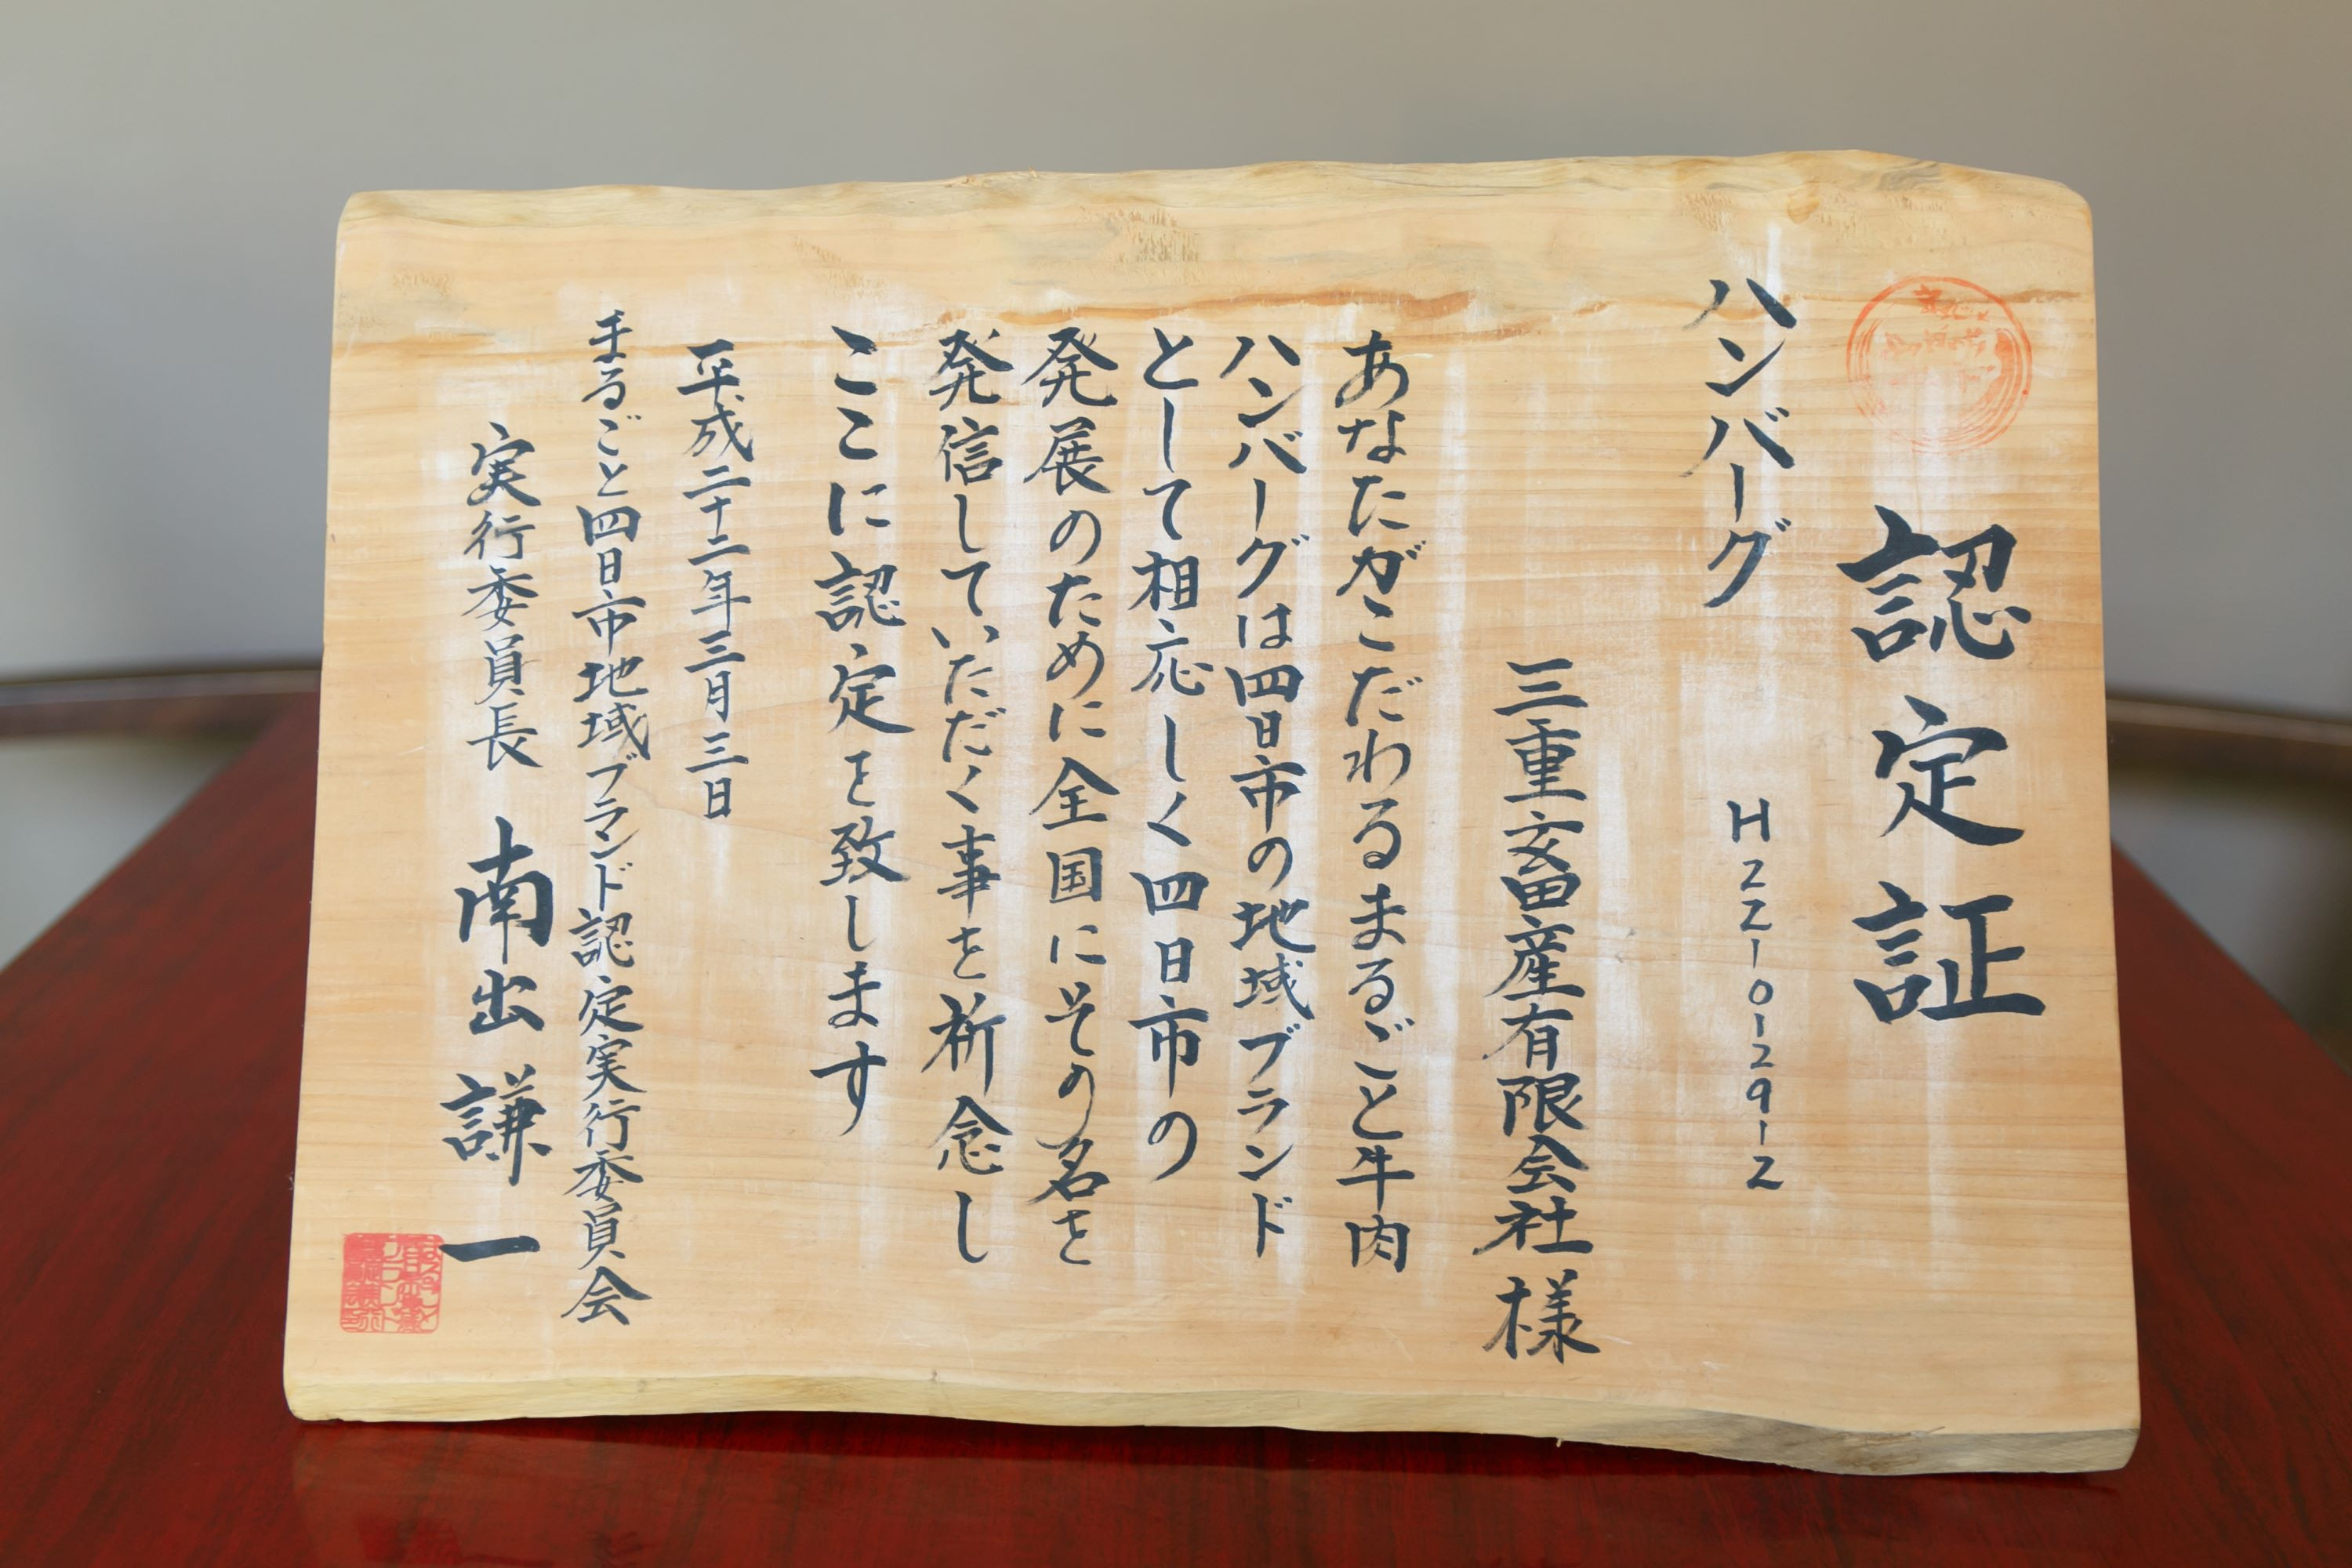 認定証
ハンバーグ H22-0-29-2
三重畜産有限会社 様
あなたがこだわるまるごと牛肉
ハンバーグは四日市の地域ブランド
として相応しく四日市の
発展のために全国にその名を
発信していただく事を祈念し
ここに認定を致します
平成二十二年三月三日
まるごと四日市地域ブランド認定実行委員会
実行委員長 南出謙一